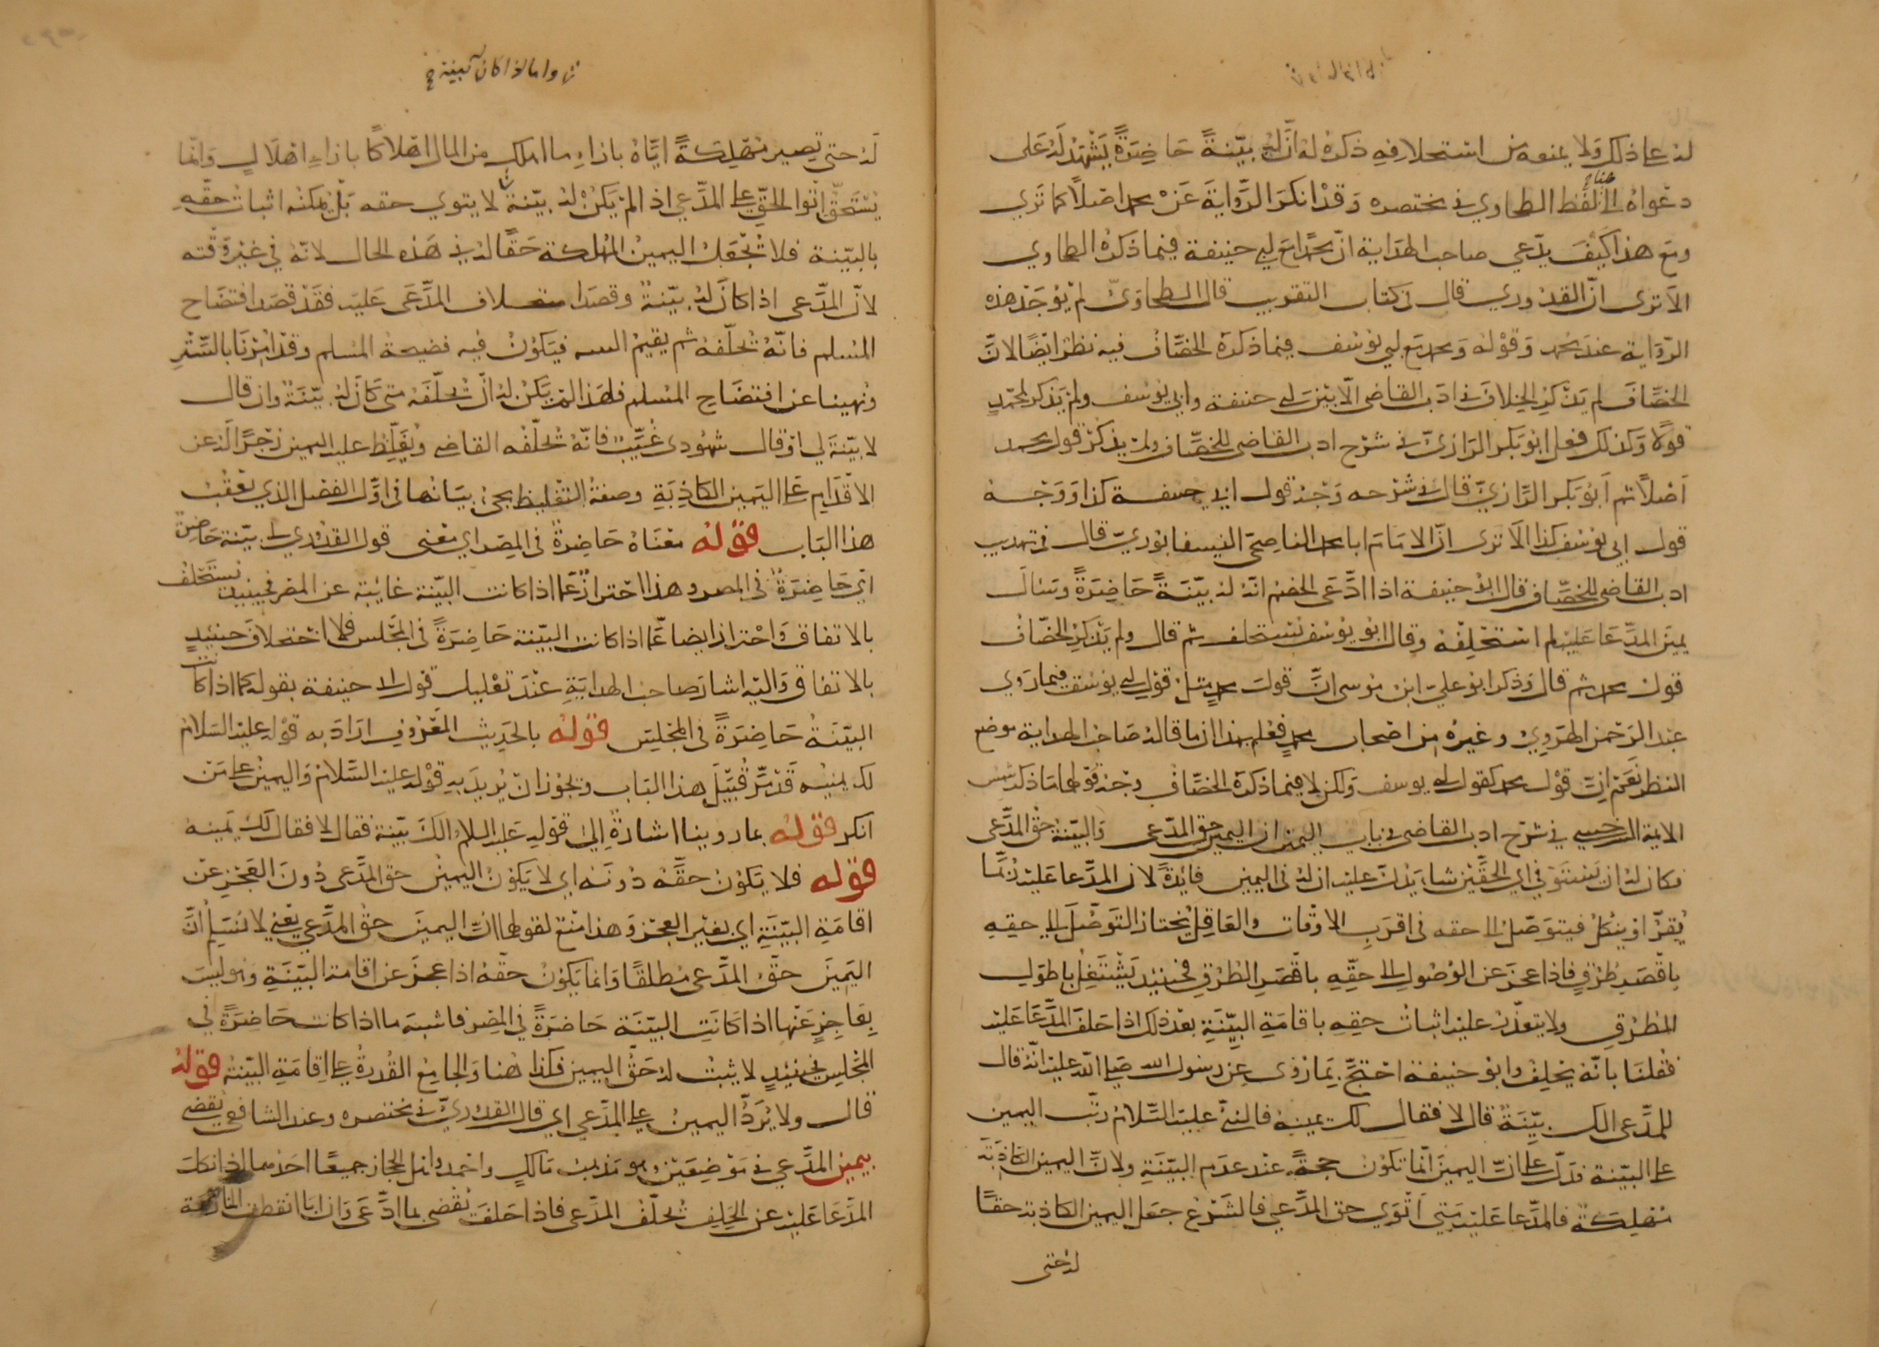 له على ذلك ولا يمنعه من استحلافه ذكره له أنّ لي بيّنةً حاضرةً يَشْهَدُ لَهُ عَلَى
دعواهُ الى هنا لفظ الطحاوي في مختصره وَقدْ انكرَ الرّوايةَ عَنْ محمد اصْلاً كما تَري
ومع هذا كَيْفَ يدّعي صاحب الهداية انّ محمّدا مَعَ ابي حنيفة فيما ذكرهُ الطحاوي
الاَ تَرى انّ القدوري قال في كتاب التقريب قال الطحاويّ لم يُوجَدْ هذه
الرّواية عند محمد وَقَوْلهُ وَمحمد مع ابي يوسُف فيما ذكرهُ الخصّافُ فيه نظرٌ ايضًا لانّ
الخصّافَ لم يَذْكرِ الخلافَ في ادَب القاضي الّا بَيْنَ ابي حنيفة وابي يوسُف ولم يَذكر لمحمّدٍ
قولاً وَكذلك فعل ابو بَكر الرازيّ في شرْح ادب القاضي للخصّاف ولم يذكرْ قول محمد
اَصْلاً ثم اَبُو بَكر الرّازيّ قال في شرحه وَجْهُ قول ابي حنيفة كذا وَوَجْهُ
قول ابي يوسُف كذا اَلاَ ترى انّ الامَامَ ابا محمد الناصحيّ النيسابوريّ قال في تهذيب
ادب القاضي للخصّاف قال ابو حنيفة اذا ادّعَى الخصْم انّهُ لهُ بيّنَةً حَاضِرَةً وَسَألَ
يمينَ المدّعَا عَليْه لم استَحْلِفْهُ وقال ابو يوسُف يستحلف ثم قال ولم يَذْكرِ الخصّافُ
قولَ محمد ثم قال وَذكر ابو عليّ ابن موسى انّ قولَ محمدٍ مثلُ قولِ ابي يوسُف فيما رَوى
عبد الرّحْمن الهرَويُّ وغيرُهُ من اصْحاب محمدٍ فعُلم بهذا ان ما قالهُ صَاحبُ الهداية موضع
النظر نَعَمْ انّ قوْلَ محمد كقول ابي يوسف ولكن لا فيما ذكرهُ الخصّافُ وَجْهُ قولهما مَا ذكر شمس
الايمة السّرخسي في شرْح ادب القاضي في باب اليمين ان اليمين حق المدّعى وَالبيّنةُ حقّ المدّعى
فكان لهُ ان يَسْتوْفي اي الحقّيْن شاء يَدُلّ عليه ان لهُ في اليمين فايْدةً لان المدّعا عَليْه رُبّمَا
يُقِرُّ او يَنْكُلُ فيتوَصّلُ الى حقه في اقرَبِ الاوْقات والعَاقِلُ يَحتار التوَصُّلَ الى حقِهِ
باَقْصَرِ طُرُقٍ فاذا عَجزَ عن الوُصُولِ الى حَقِّهِ باقْصَرِ الطُرُقِ فحينيْذٍ يَشْتَغِلُ باطوَلِ
الطُرُقِ ولا يتعَذّرُ عليْه اثبات حقِهِ باقامَةِ البيّنَةِ بعْدَ ذلك اذا حَلفَ المدّعَا عَليْه
فقُلنَا بانّهُ يحلِفُ وابو حنيفة احْتَجّ بمَا رُوى عن رسُول الله صَلى الله عليه انّهُ قال
للمدّعى الكَ بيّنَةٌ قال لا فقال لك يمينهُ فالنبيّ عليْه السّلامُ رتّبَ اليمين
على البيّنة فدَلّ على انّ اليمينَ انّما تكونُ حجةً عند عدَمِ البيّنَةِ ولانّ اليمين الكاذبَةَ
مُهْلِكَةٌ فالمدّعا عَليْه متَى اَتْوَى حق المدّعي فالشّرْعُ جعَلَ اليمين الكاذبة حقًا
لهُ حتى
ن واما اذا كان له بينة خ
لَهُ حتى تصير مُهْلِكَةً ايّاهُ بازاءِ ما اهلك من المال اهْلاكًا بازاءِ اهْلاكٍ وَانّما
يَسْتَحِقُّ اتْوا الحَقِّ على المدّعي اذا لمْ يَكُنْ لهُ بيّنةٌ لا يتوي حقه بَلْ يمكنْه اثبات حَقِّهِ
بالبيّنة فلا تُجْعَلُ اليمينُ المُهْلكة حَقًا لهُ في هَذِهِ الحال لانّهُ في غيْر وَقْته
لانّ المدّعى اذا كانَ لهُ بيّنَةٌ وقصَدَ استحلاف المدَّعَى عَليْه فقَدْ قصَدَ افتضَاح
المُسْلم فانّهُ تُحلّفهُ ثم يقيمُ البينة فيَكونُ فيه فضيحة المُسْلم وقدْ اُمِرْنَا بالسّتْرِ
ونُهينا عن افتضَاحِ المُسْلم فلهَذا لم يَكُنْ لهُ انْ يُحلّفَهُ متى كَانَ لهُ بيّنَةٌ وان قال
لا بيّنَةَ لي اوْ قال شهُودى غُيَّبٌ فانّهُ تُحَلّفُه القاضي ويُغَلّظ عليْه اليمين زجْرًا لهُ عن
الاقْدَامِ عَلى اليَمين الكاذِبَةِ وصفةُ التّغْليظ يجىُ بيَانُها في اوّل الفصْل الذي يَعْقُبُ
هذا البَاب قوله معْنَاهُ حَاضِرَةٌ في المِصر اي معْنى قول القدُوري لي بيّنة حَاضِرَةٌ
اَيْ حَاضِرَةٌ في المصر وهذا احْترازٌ عمّا اذا كانت البيّنة غائبةً عن المصر فحينيذٍ يُسْتَحْلَفُ
بالاتفاق وَاحْتراز ايضا عَمّا اذا كانت البيّنة حَاضِرَةً في المجْلس فلا اسْتحلافَ حينيْذٍ
بالاتفاق وَاليْه اشارَ صاحبُ الهدَايَةِ عنْدَ تعْليل قوْل ابي حنيفة بقوله كما اذا كانت
البيّنَةُ حَاضِرَةً في المجْلِس قوله بالحَدِيث المَعْرُوفِ ارَادَ به قوْله عليْه السّلامُ
لك يمينه قَدْ مرَّ قُبَيْلَ هذا البَاب ويجُوز انْ يُريدَ بهِ قَوْلهُ عليْه السّلامُ وَاليمينُ على مَن
انكر قوله بما روينا اشارةً اِلى قوْلِهِ عَليْه السلامُ الكَ بيّنة فقال لا فقال لك يَمينه
قوله فلا يكوُنُ حقّهُ دُونَهُ اي لا يَكوُنُ اليمينُ حقَ المدَّعي دُونَ العَجْزِ عَنْ
اقامَةِ البيّنَةِ اي بغيْر العجْزِ وَهذا منْعٌ لقولهما انّ اليمينَ حقُ المدَّعي يعْني لا نُسَلِّمُ اَنَّ
اليَمينَ حَقُّ المدّعى مُطلقًا وَانما يَكوُنُ حقّهُ اذا عجزَ عن اقامة البيّنَةِ وهو ليْسَ
بِعَاجِزٍ عَنْها اذا كَانَتِ البيّنَة حَاضرَةً في المِصْر فاشبهَ ما اذا كانت حَاضِرَةً في
المجْلِس فحينيْذٍ لا يثبتُ لهُ حَقُّ اليَمين فكذا هُنا وَالجامعُ القُدرَةُ على اِقامَةِ البيّنَة قوله
قال ولا يُرَدُّ اليمينُ على المدّعي اي قال القدُوريّ في مختصره وعند الشافعي يُقضى
بيمين المدَّعي في مَوْضِعَيْن وهو مَذهبُ مَالكٍ واحْمد واهل الحجاز جميعًا احَدهما اذا نكلَ
المدّعَا عَليْه عن الحَلِف تُحلّفُ المدّعى فاذا حَلفَ يُقضى بما ادَّعَى وَان ابَا انقطعت المنازعة